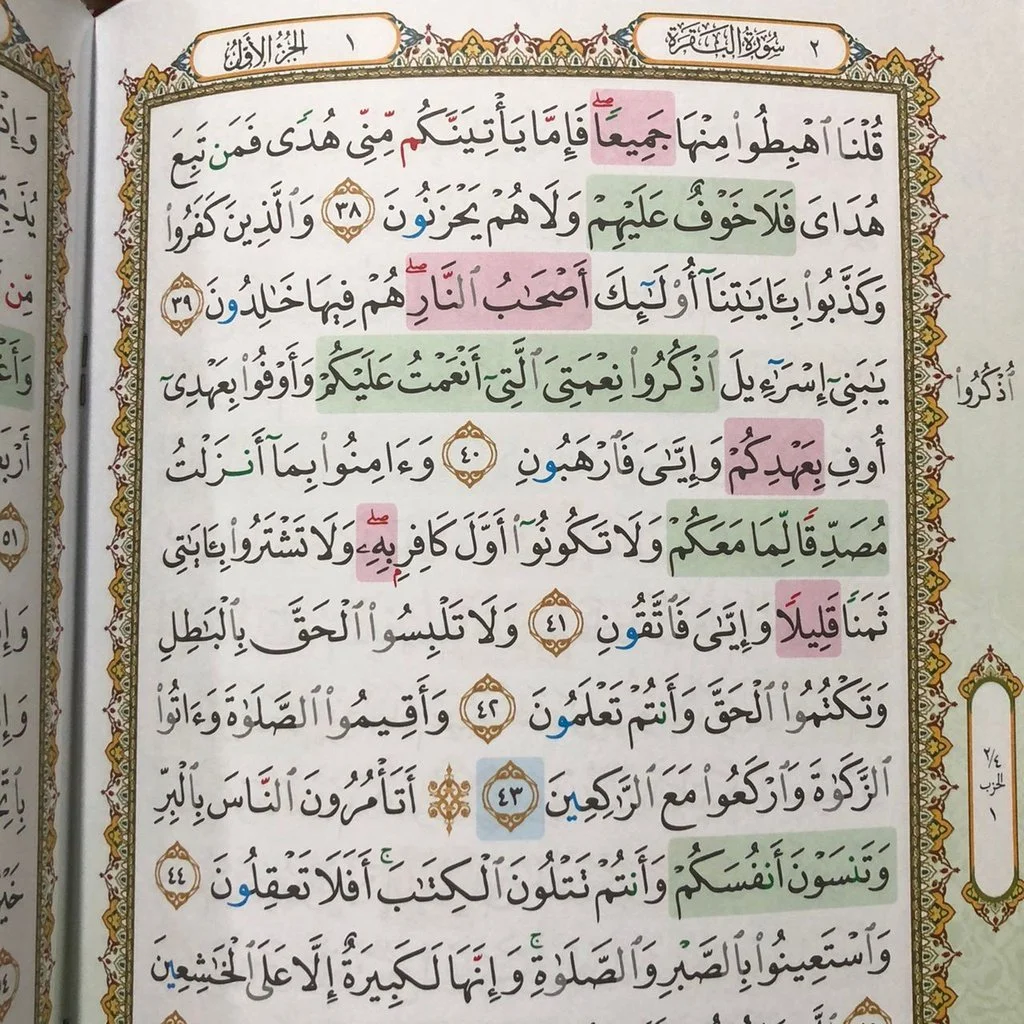 ٢ سُورَةُ البَقَرَةِ
الجُزْءُ الأَوَّلُ ١
قُلْنَا ٱهْبِطُوا۟ مِنْهَا جَمِيعًاۖ فَإِمَّا يَأْتِيَنَّكُم مِّنِّى هُدًى فَمَن تَبِعَ
هُدَاىَ فَلَا خَوْفٌ عَلَيْهِمْ وَلَا هُمْ يَحْزَنُونَ ٣٨ وَٱلَّذِينَ كَفَرُوا۟
وَكَذَّبُوا۟ بِـَٔايَـٰتِنَآ أُو۟لَـٰٓئِكَ أَصْحَـٰبُ ٱلنَّارِۖ هُمْ فِيهَا خَـٰلِدُونَ ٣٩
يَـٰبَنِىٓ إِسْرَٰٓءِيلَ ٱذْكُرُوا۟ نِعْمَتِىَ ٱلَّتِىٓ أَنْعَمْتُ عَلَيْكُمْ وَأَوْفُوا۟ بِعَهْدِىٓ
أُذْكُرُوا۟
أُوفِ بِعَهْدِكُمْ وَإِيَّـٰىَ فَٱرْهَبُونِ ٤٠ وَءَامِنُوا۟ بِمَآ أَنزَلْتُ
مُصَدِّقًا لِّمَا مَعَكُمْ وَلَا تَكُونُوٓا۟ أَوَّلَ كَافِرٍۭ بِهِۦۖ وَلَا تَشْتَرُوا۟ بِـَٔايَـٰتِى
ثَمَنًا قَلِيلًا وَإِيَّـٰىَ فَٱتَّقُونِ ٤١ وَلَا تَلْبِسُوا۟ ٱلْحَقَّ بِٱلْبَـٰطِلِ
وَتَكْتُمُوا۟ ٱلْحَقَّ وَأَنتُمْ تَعْلَمُونَ ٤٢ وَأَقِيمُوا۟ ٱلصَّلَوٰةَ وَءَاتُوا۟
ٱلزَّكَوٰةَ وَٱرْكَعُوا۟ مَعَ ٱلرَّٰكِعِينَ ٤٣ ۞ أَتَأْمُرُونَ ٱلنَّاسَ بِٱلْبِرِّ
٢/٤
الحزب
١
وَتَنسَوْنَ أَنفُسَكُمْ وَأَنتُمْ تَتْلُونَ ٱلْكِتَـٰبَۚ أَفَلَا تَعْقِلُونَ ٤٤
وَٱسْتَعِينُوا۟ بِٱلصَّبْرِ وَٱلصَّلَوٰةِۚ وَإِنَّهَا لَكَبِيرَةٌ إِلَّا عَلَى ٱلْخَـٰشِعِينَ